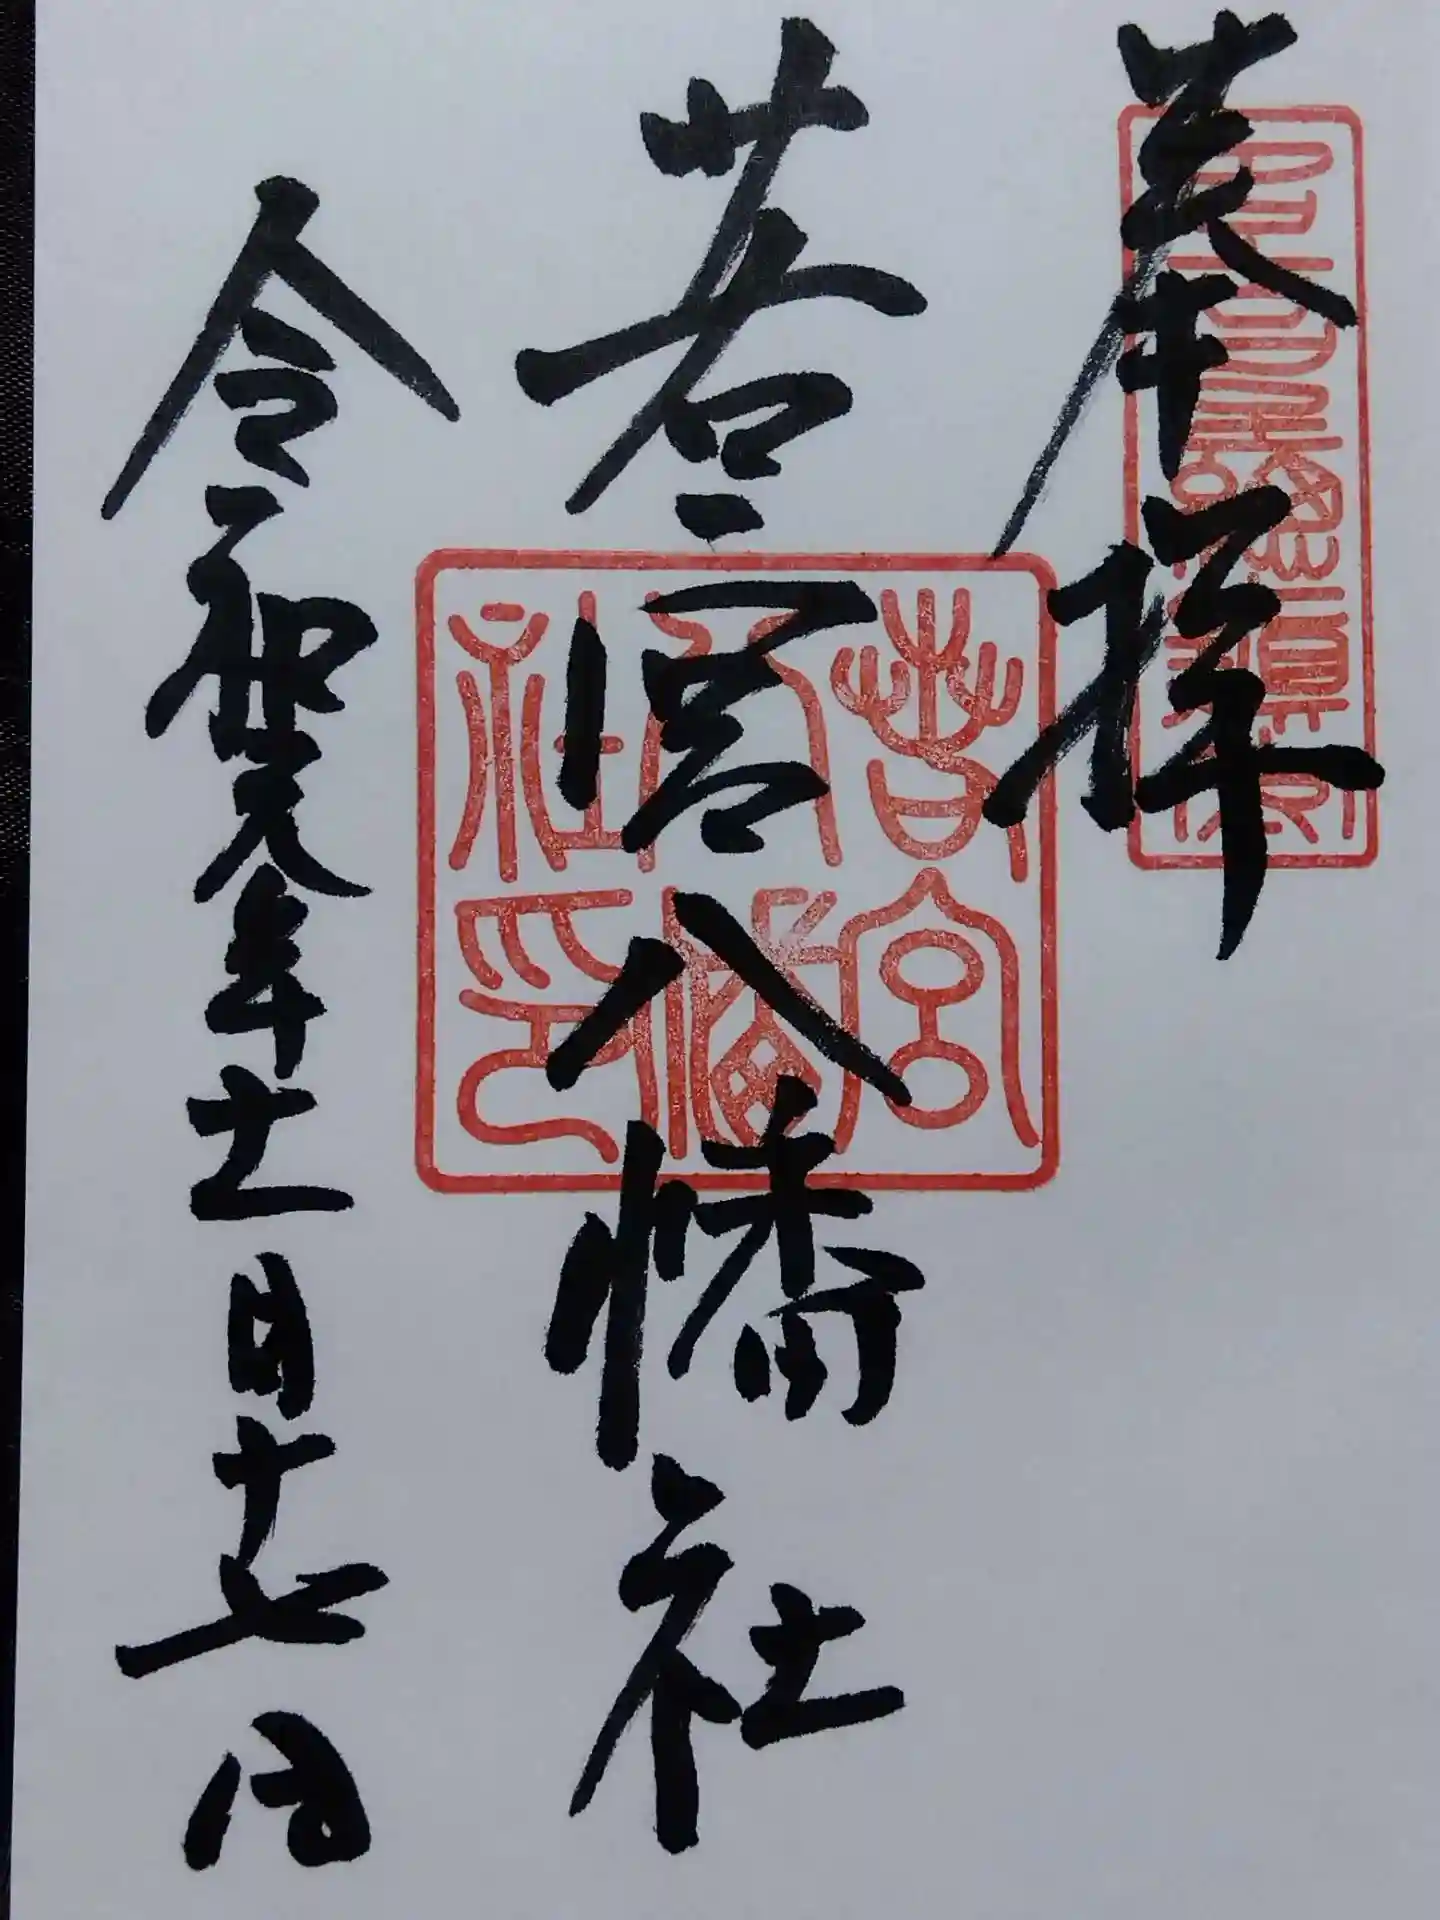 奉拝
若宮八幡社
若宮八幡社印
令和元年十一月十七日